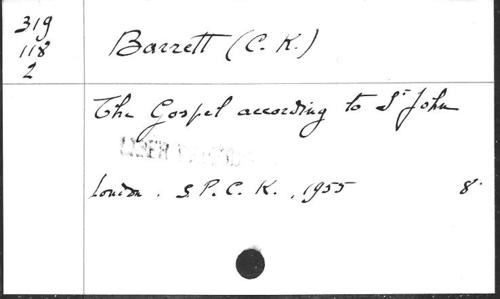 319
118
2
Barrett (C. K.)
The Gospel according to St John
London. S.P.C.K., 1955 8°